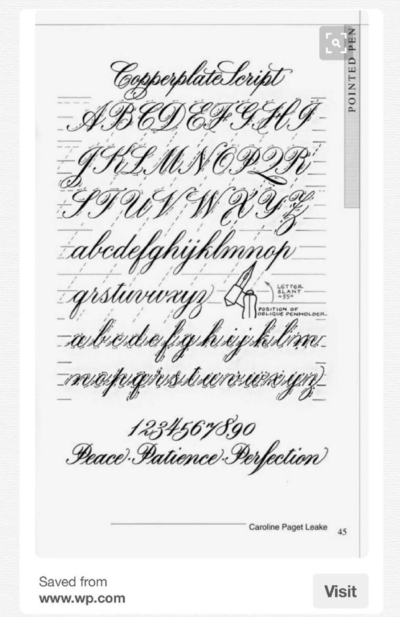 POINTED PEN
Copperplate Script
ABCDEFGHI
JKLMNOPQR
STUVWXYZ
abcdefghijklmnop
qrstuvwxyz
LETTER
SLANT
~55°
POSITION OF
OBLIQUE PENHOLDER.
abcdefghijklm
nopqrstuvwxyz
1234567890
Peace·Patience·Perfection
Caroline Paget Leake
45
Saved from
www.wp.com
Visit